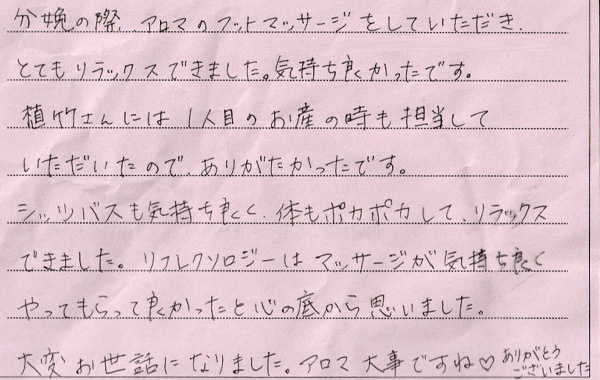 分娩の際、アロマのフットマッサージをしていただき、
とてもリラックスできました。気持ち良くかったです。
植竹さんには1人目のお産の時も担当して
いただいたので、ありがたかったです。
シッツバスも気持ち良くく、体もポカポカして、リラックス
できました。リフレクソロジーはマッサージが気持ち良く
やってもらって良かったと心の底から思いました。
大変お世話になりました。アロマ大事ですね♡ ありがとう
ございました